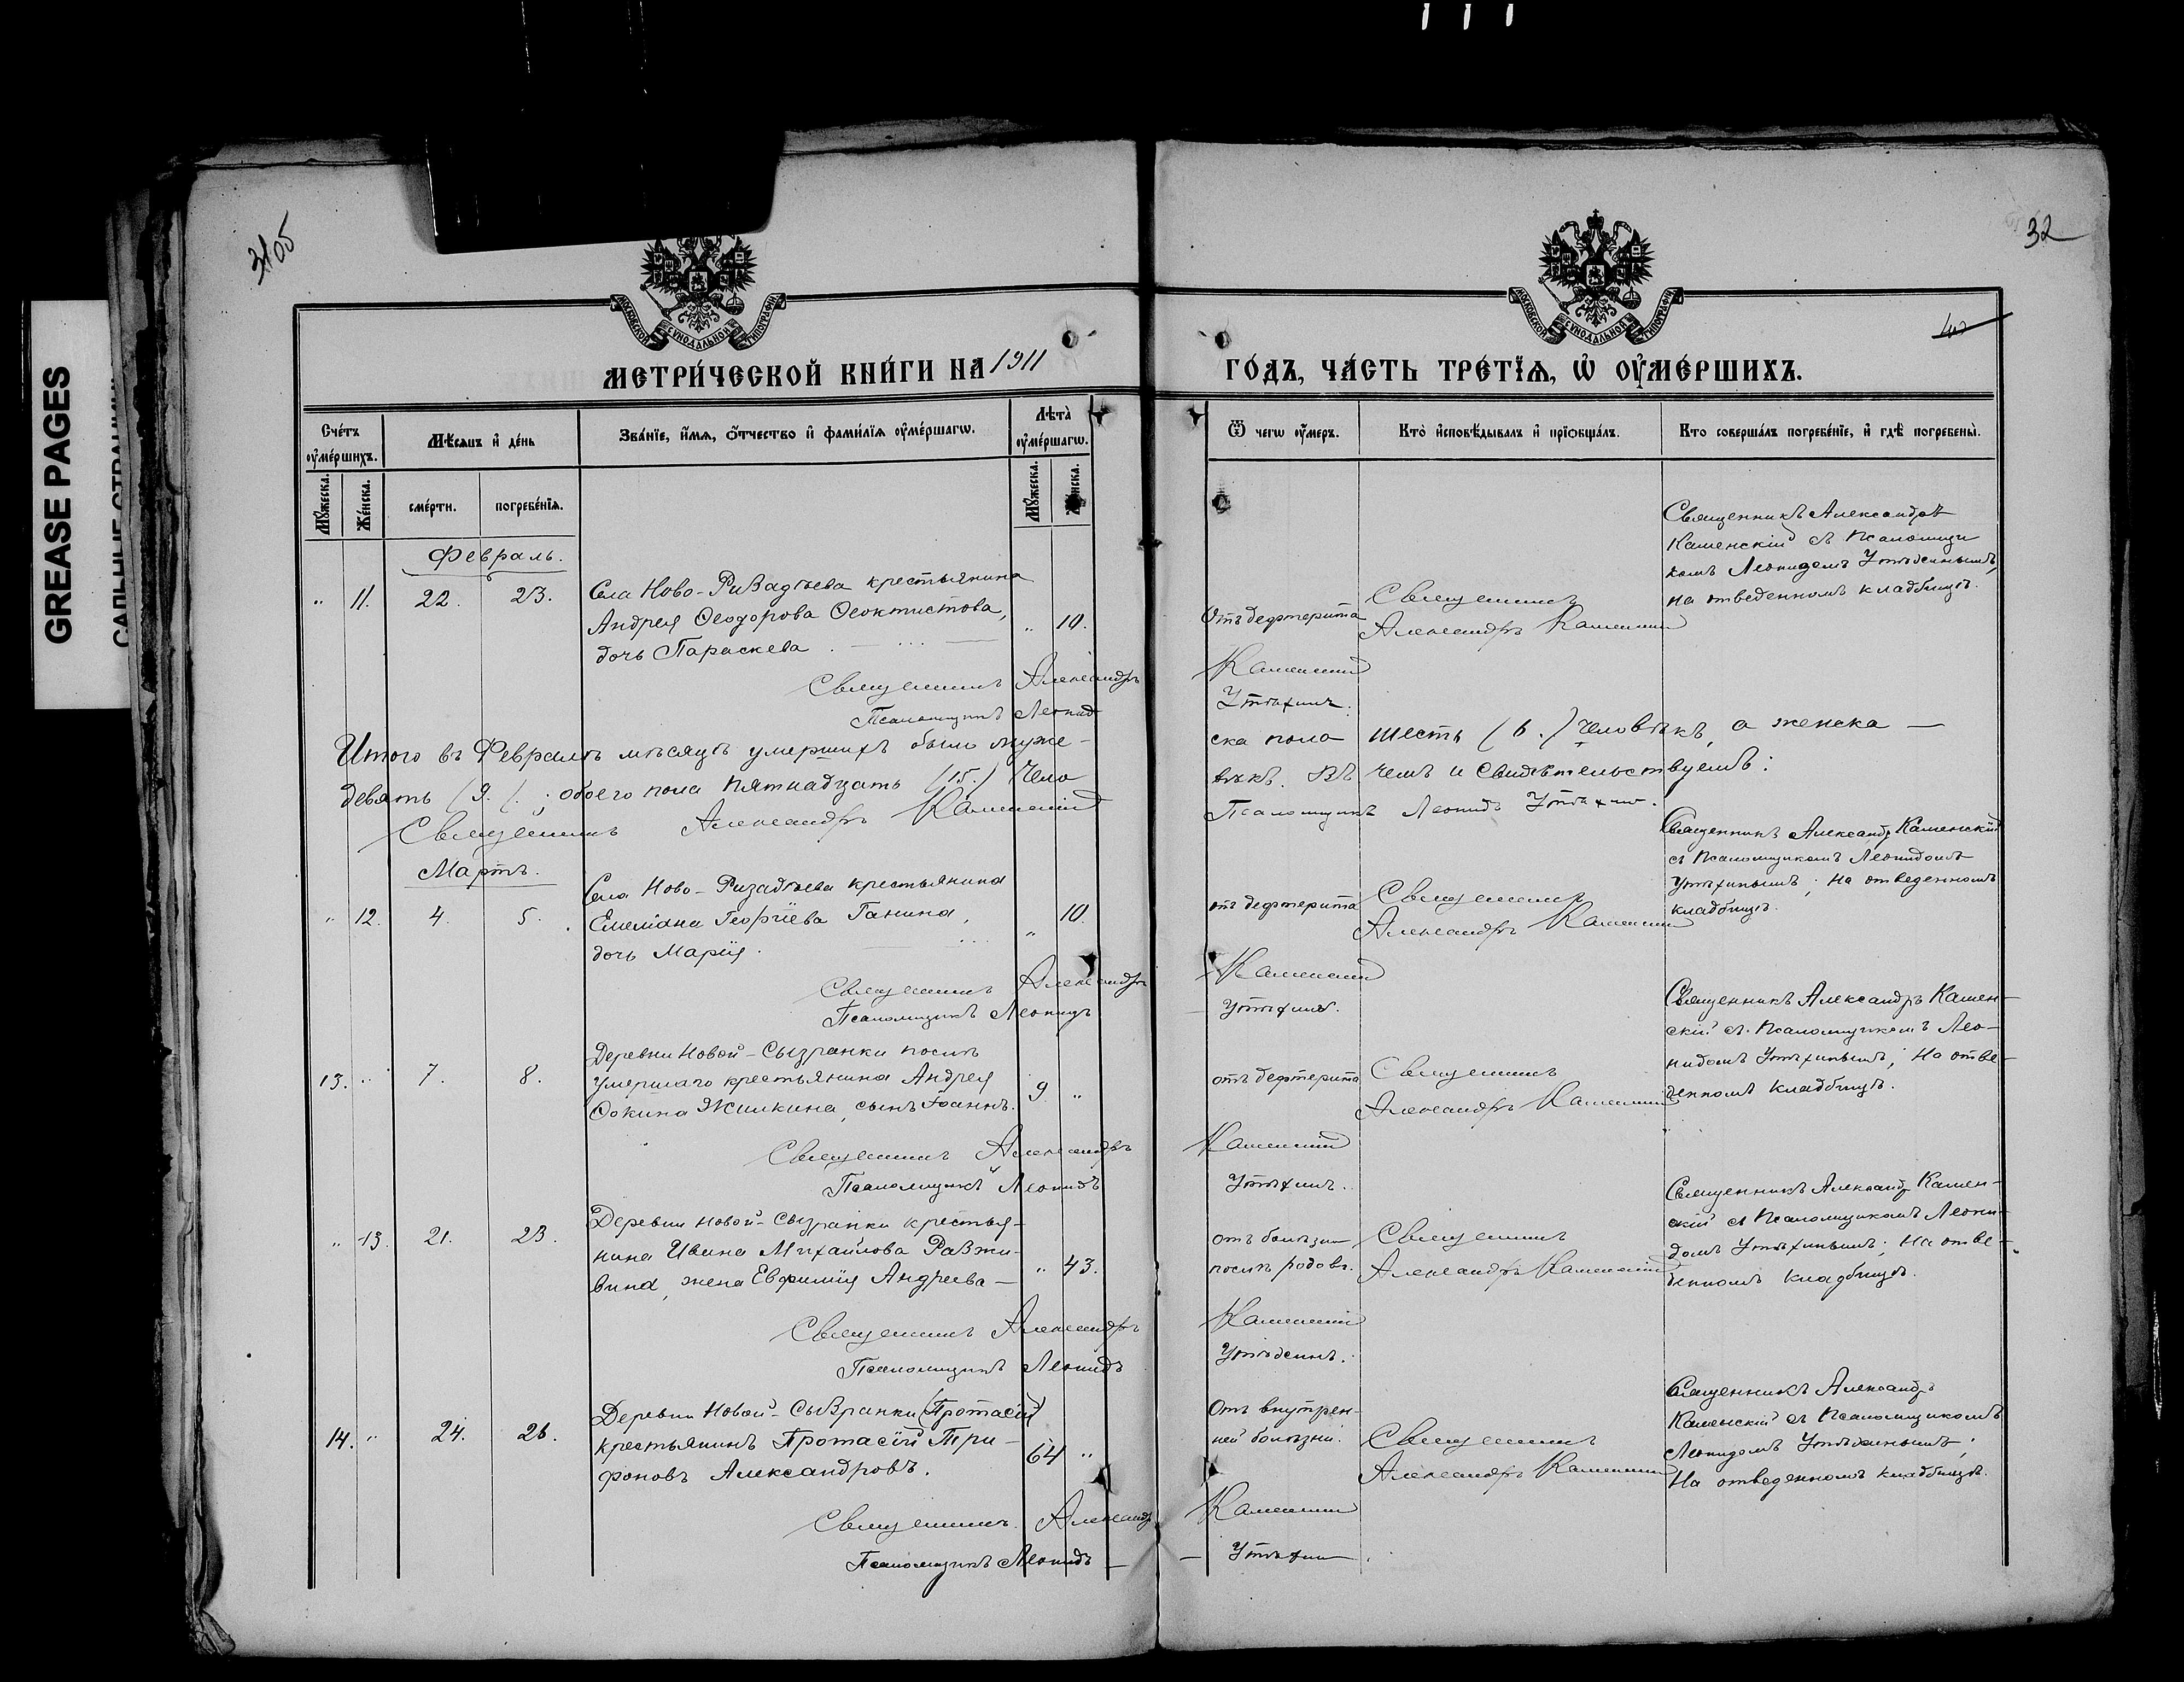 GREASE PAGES
3105
32
МОСКОВСКОЙ СѴНОДАЛЬНОЙ ТИПОГРАФІИ
МОСКОВСКОЙ СѴНОДАЛЬНОЙ ТИПОГРАФІИ
МЕТРИ́ЧЕСКОЙ КНИ́ГИ НА 1911 ГО́ДЪ, ЧА́СТЬ ТРЕ́ТЇѦ, Ѡ҆ ОУ҆МЕ́РШИХЪ.
Сче́тъ оу҆ме́ршихъ.
Мѣ́сяцъ и҆ де́нь
Зва́нїе, и҆́мѧ, о҆́тчество и҆ фами́лїѧ оу҆ме́ршагѡ.
Лѣта̀ оу҆ме́ршагѡ.
Ѿ чегѡ̀ оу҆́меръ.
Кто̀ и҆сповѣ́дывалъ и҆ прїѡбща́лъ.
Кто̀ соверша́лъ погребе́нїе, и҆ гдѣ̀ погребены̀.
Мꙋ́жеска.
Же́нска.
сме́рти.
погребе́нїѧ.
Мꙋ́жеска.
Февраль.
" 11. 22. 23.
Села Ново-Ризадѣева крестьянина
Андрея Ѳеодорова Ѳеоктистова,
дочь Параскева
" 10.
Отъ дефтерита
Священникъ
Александръ Каменскій
Священникъ Александръ
Каменскій съ Псаломщи
комъ Леонидомъ Утѣхинымъ,
на отведенномъ кладбищѣ.
Священникъ Александръ Каменскій
Псаломщикъ Леонид Утѣхинъ.
Итого въ Февралѣ мѣсяцѣ умершихъ было муже-ска пола шесть (6.) человѣкъ, а женска —
девять (9.).; обоего пола пятнадцать (15.) человѣкъ. Въ чемъ и свидѣтельствуемъ:
Священникъ Александръ Каменскій
Псаломщикъ Леонидъ Утѣхинъ.
Мартъ.
" 12. 4. 5.
Села Ново-Ризадѣева крестьянина
Емеліана Георгіева Ганина,
дочь Марія.
" 10.
отъ дефтерита
Священникъ
Александръ Каменскій
Священникъ Александръ Каменскій
съ Псаломщикомъ Леонидомъ
Утѣхинымъ; на отведенномъ
кладбищѣ.
Священникъ Александръ Каменскій
Псаломщикъ Леонидъ Утѣхинъ.
13. " 7. 8.
Деревни Новой-Сызранки послѣ
умершаго крестьянина Андрея
Ѳокина Жилкина, сынъ Іоаннъ.
9. "
отъ дефтерита
Священникъ
Александръ Каменскій
Священникъ Александръ Камен-
скій съ Псаломщикомъ Лео-
нидомъ Утѣхинымъ; На отве-
денномъ кладбищѣ.
Священникъ Александръ Каменскій
Псаломщикъ Леонидъ Утѣхинъ.
" 13. 21. 23.
Деревни Новой-Сызранки крестья-
нина Ивана Михайлова Разжи-
вина, жена Евфимія Андреева —
" 43.
отъ болѣзни
послѣ родовъ.
Священникъ
Александръ Каменскій
Священникъ Александръ Камен-
скій съ Псаломщикомъ Леони-
домъ Утѣхинымъ; На отве-
денномъ кладбищѣ.
Священникъ Александръ Каменскій
Псаломщикъ Леонидъ Утѣхинъ.
14. " 24. 26.
Деревни Новой-Сызранки (Протасій)
крестьянинъ Протасій Три-
фоновъ Александровъ.
64 "
Отъ внутрен-
ней болѣзни.
Священникъ
Александръ Каменскій
Священникъ Александръ
Каменскій съ Псаломщикомъ
Леонидомъ Утѣхинымъ;
На отведенномъ кладбищѣ.
Священникъ Александръ Каменскій
Псаломщикъ Леонидъ — Утѣхинъ